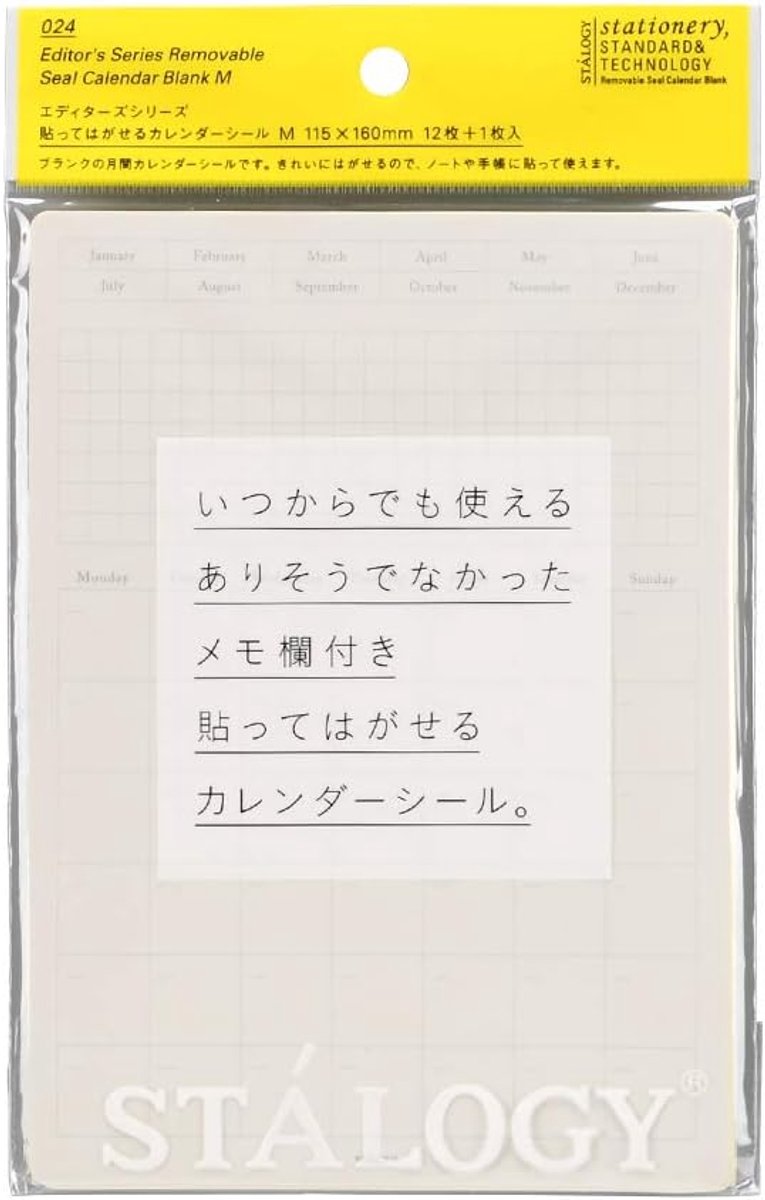 024
Editor's Series Removable
Seal Calendar Blank M
エディターズシリーズ
貼ってはがせるカレンダーシール M 115×160mm 12枚+1枚入
ブランクの月間カレンダーシールです。きれいにはがせるので、ノートや手帳に貼って使えます。
STÁLOGY
stationery,
STANDARD&
TECHNOLOGY
Removable Seal Calendar Blank
January February March April May June
July August September October November December
Monday Sunday
いつからでも使える
ありそうでなかった
メモ欄付き
貼ってはがせる
カレンダーシール。
STÁLOGY®